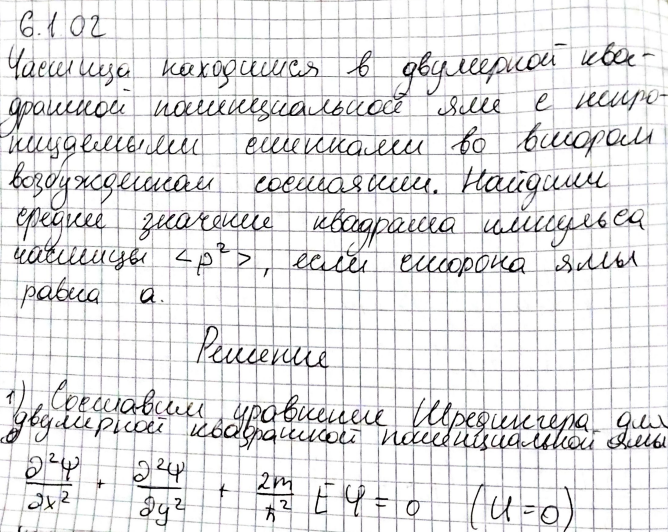 6.1.02
Частица находится в двумерной квад-
дратной потенциальной яме с непро-
ницаемыми стенками во втором
возбужденном состоянии. Найдите
среднее значение квадрата импульса
частицы <p²>, если сторона ямы
равна a.
Решение
1) Составим уравнение Шредингера для
двумерной квадратной потенциальной ямы
∂²Ψ/∂x² + ∂²Ψ/∂y² + 2m/ħ² EΨ = 0 (U=0)